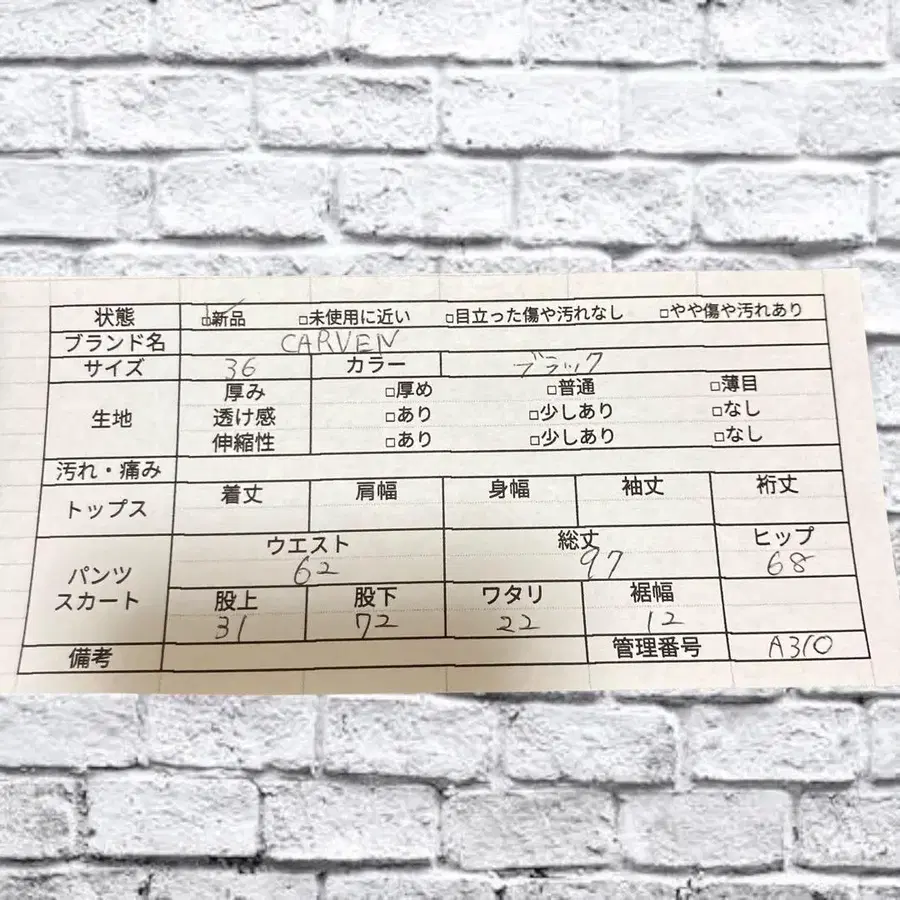 状態 ☑新品 □未使用に近い □目立った傷や汚れなし □やや傷や汚れあり
ブランド名 CARVEN
サイズ 36 カラー ブラック
生地 厚み □厚め □普通 □薄目
透け感 □あり □少しあり □なし
伸縮性 □あり □少しあり □なし
汚れ・痛み
トップス 着丈 肩幅 身幅 袖丈 裄丈
パンツ スカート ウエスト 総丈 ヒップ
62 97 68
股上 股下 ワタリ 裾幅
31 72 22 12
備考 管理番号 A310